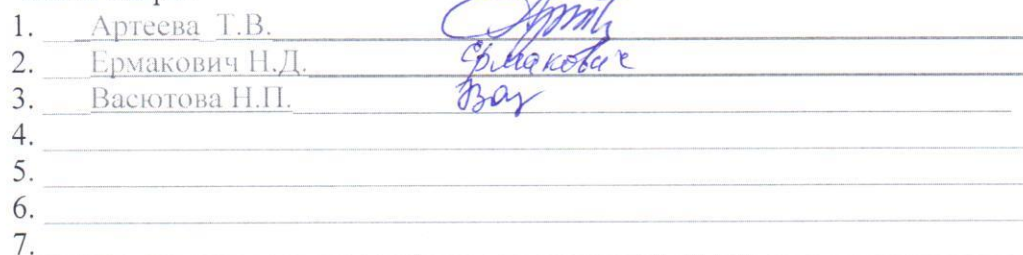 1. Артеева Т.В.
2. Ермакович Н.Д. Ермакович
3. Васютова Н.П. Вас
4.
5.
6.
7.